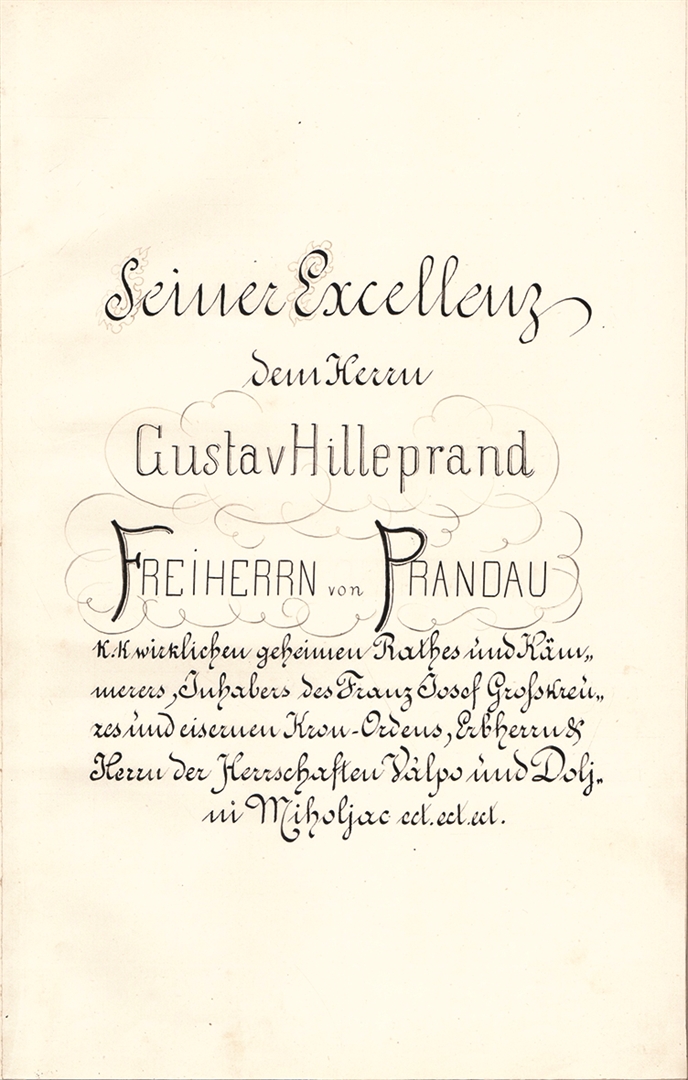 Seiner Excellenz
dem Herrn
Gustav Hilleprand
FREIHERRN von PRANDAU
k.k wirklichen geheimen Rathes und Käm„
merers, Inhabers des Franz Josef Großkreu„
zes und eisernen Kron-Ordens, Erbherrn &
Herrn der Herrschaften Válpo und Dolj„
ni Miholjac ect. ect. ect.